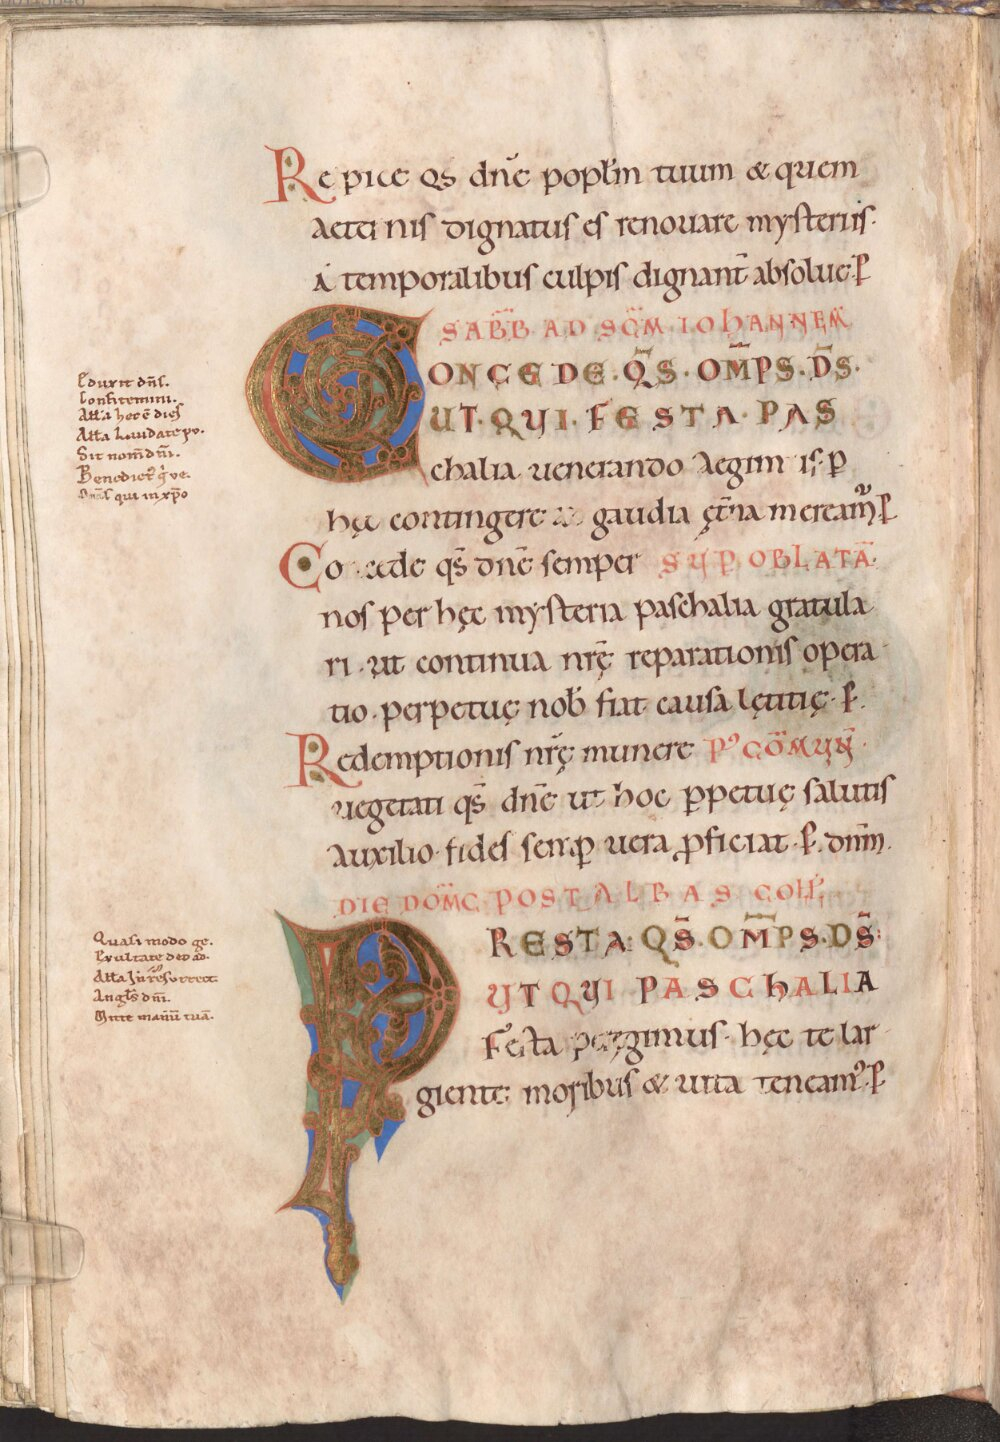 Respice qs dn̄e poplm̄ tuum & quem
aeternis dignatus es renouare mysteriis·
A temporalibus culpis dignant̄ absolue· P̄
SABB̄ AD SC̄M IOHANNEM̄
CONCEDE· Q̄S· OM̄PS· D̄S·
UT· QUI· FESTA· PAS
chalia uenerando aegim is· p
hęc contingere & gaudia ęt̄na meream̄· P̄
Concede qs̄ dn̄e semper SUP̄ OBLATĀ
nos per hęc mysteria paschalia gratula
ri· ut continua nr̄ę reparationis opera
tio· perpetuę nob̄ fiat causa lętitię· P̄
Redemptionis nr̄ę munere P' COM̄UN̄·
uegetati qs̄ dn̄e ut hoc ꝑpetuę salutis
auxilio· fides semꝑ uera ꝓficiat· P̄ dnm̄·
DIE DOM̄C· POST ALBAS COLL̄
PRESTA· Q̄S· OM̄PS· D̄S·
UT QUI PASCHALIA
Festa peregimus· hęc te lar
giente moribus & uita teneam'· P̄
Eduxit dn̄s.
Confitemini.
Alla hec ē dies
Alla Laudate pu.
Sit nom̄ dn̄i.
Benedict' q̇ ue.
Om̄s qui in xp̄o
Quasi modo ge.
Exultate deo ad.
Alla In resurrect.
Angl's dn̄i.
Mitte manū tuā.